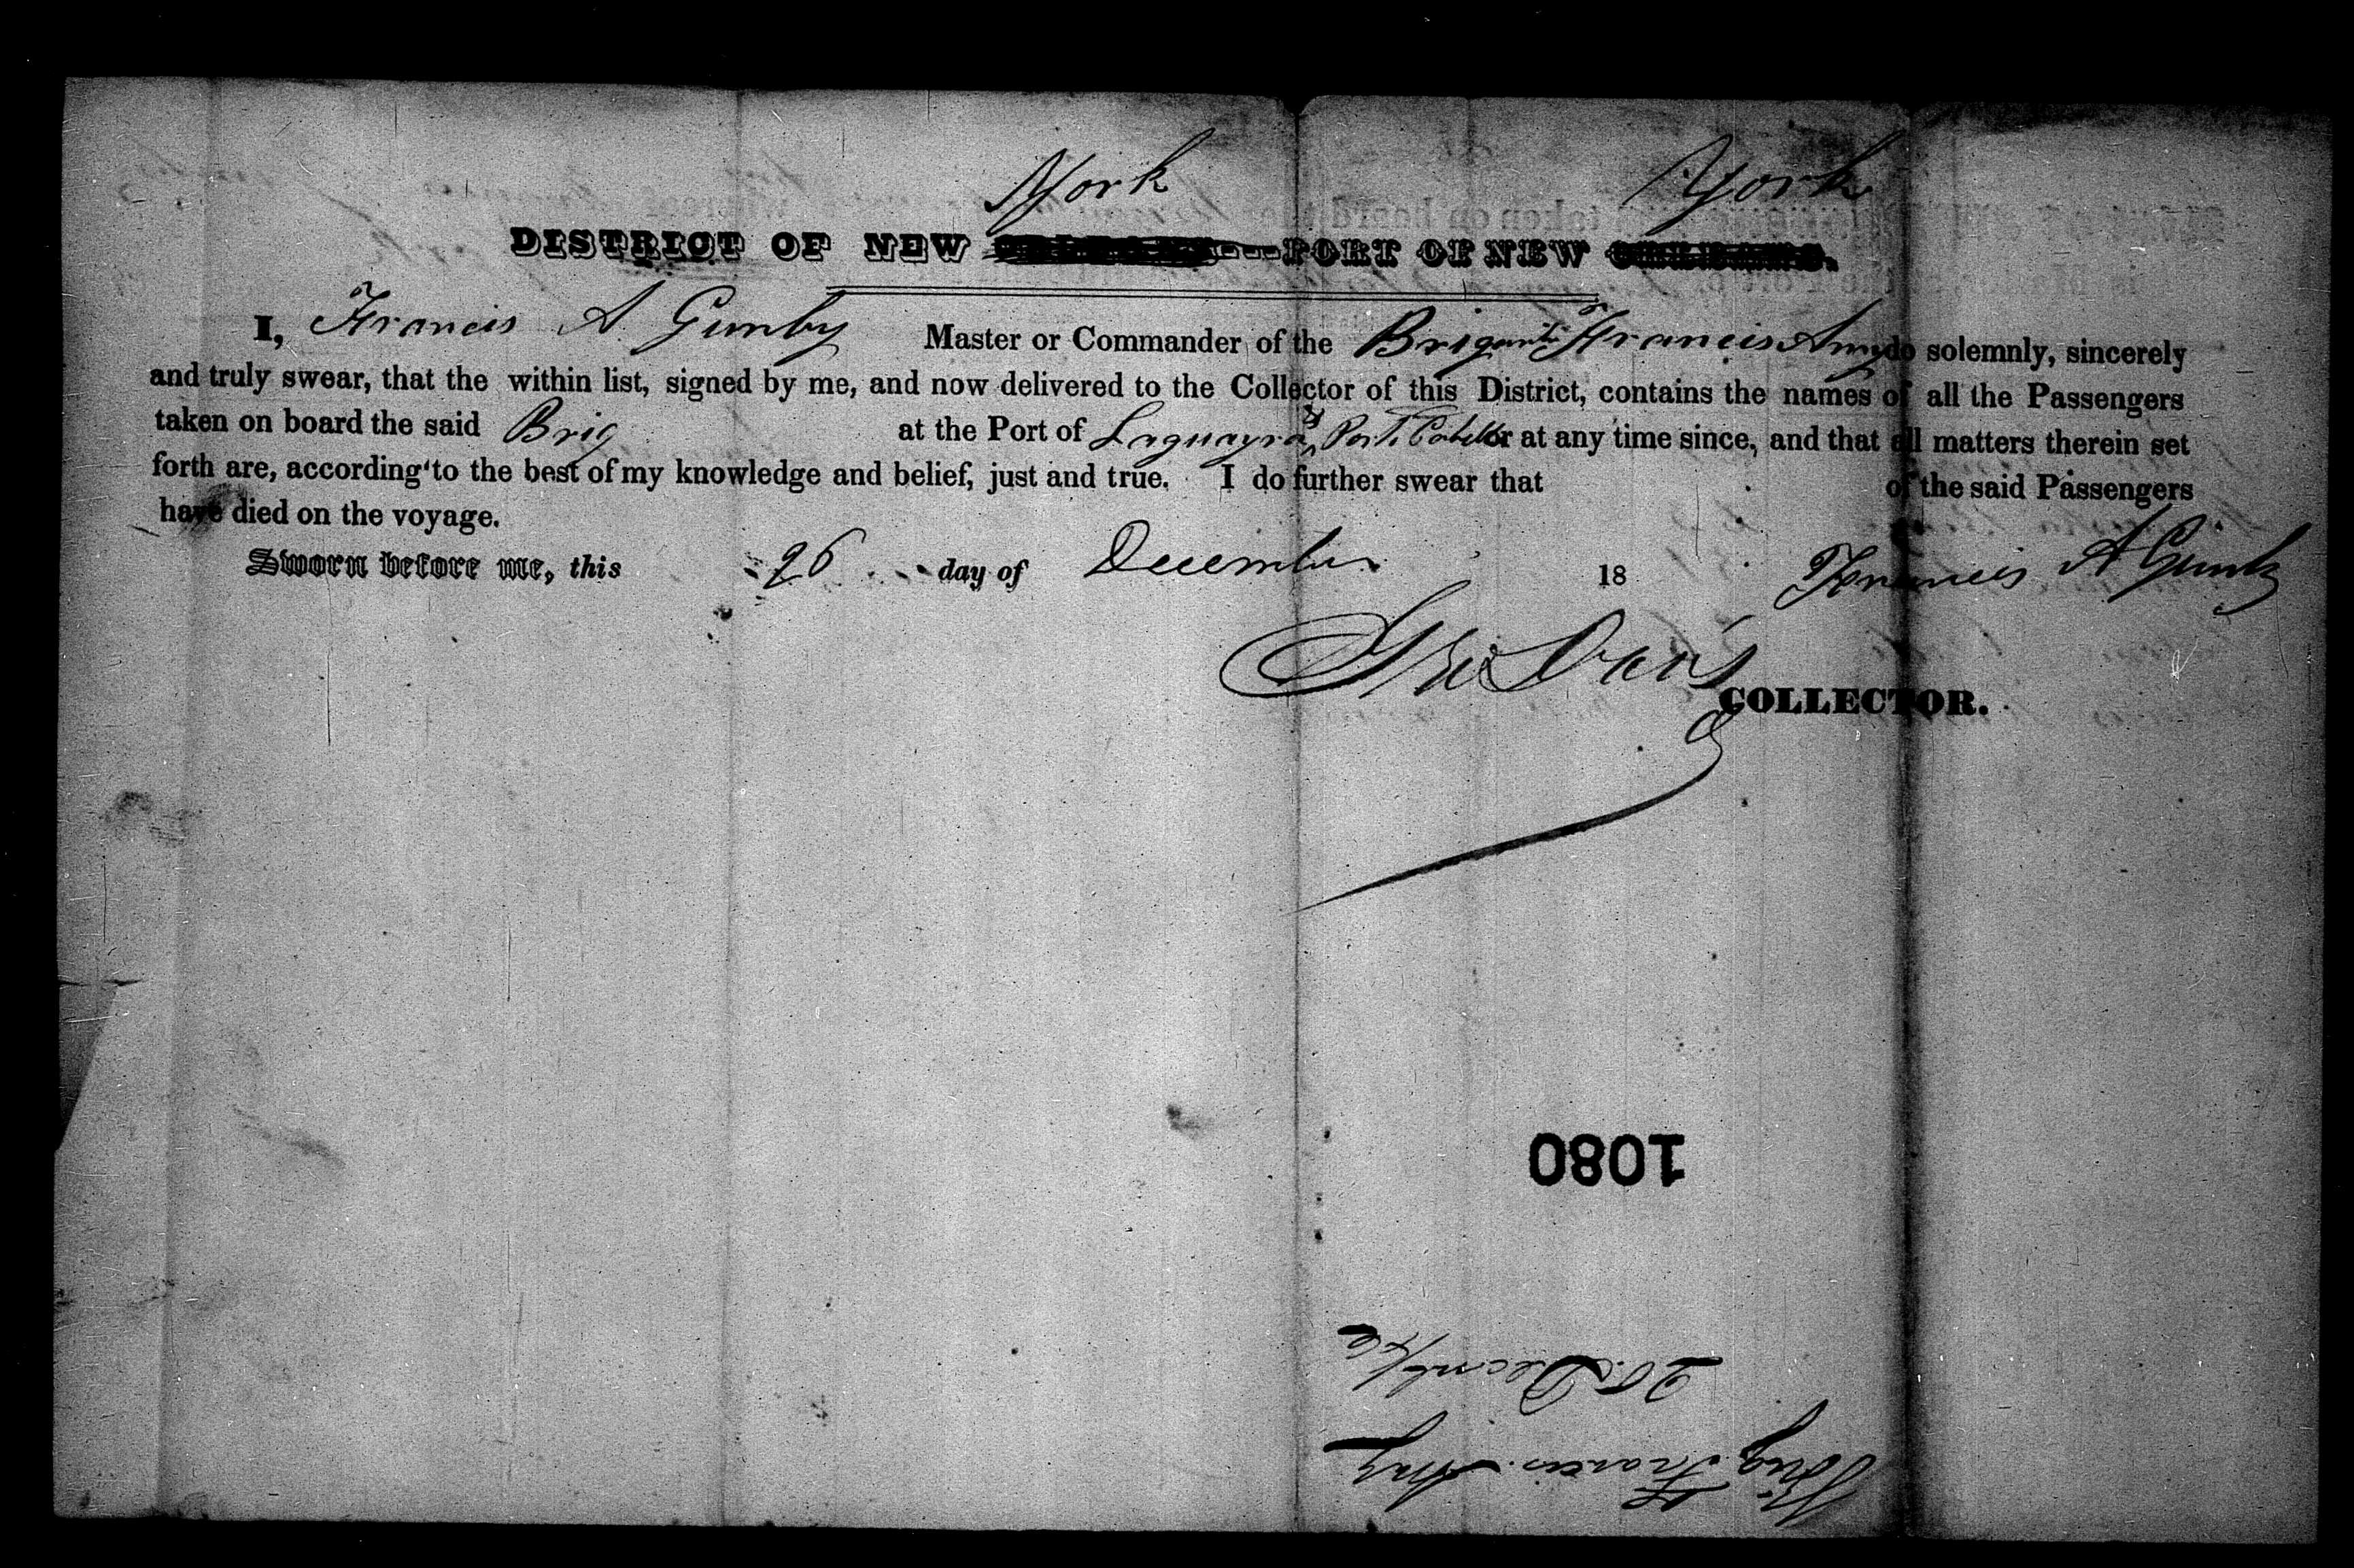 York York
DISTRICT OF NEW ---PORT OF NEW
I, Francis A Gunby Master or Commander of the Brig Francis Amy do solemnly, sincerely
and truly swear, that the within list, signed by me, and now delivered to the Collector of this District, contains the names of all the Passengers
taken on board the said Brig at the Port of Laguayra & Porto Cabello or at any time since, and that all matters therein set
forth are, according to the best of my knowledge and belief, just and true. I do further swear that of the said Passengers
have died on the voyage.
Sworn before me, this 26 day of December 18 Francis A Gunby
COLLECTOR.
1080
Brig Francis Amy